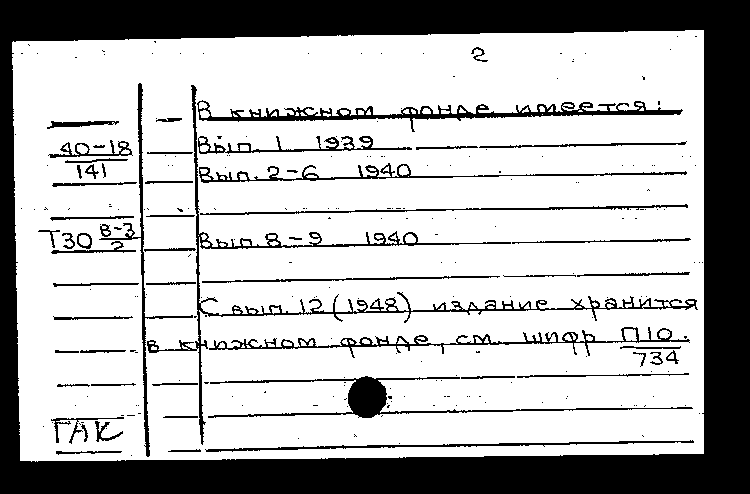 2
В книжном фонде имеется:
40-18
141
Вып. 1 1939
Вып. 2-6 1940
Т30 В-3/2 Вып. 8-9 1940
С вып. 12 (1948) издание хранится
в книжном фонде, см. шифр П10.
734
ГАК